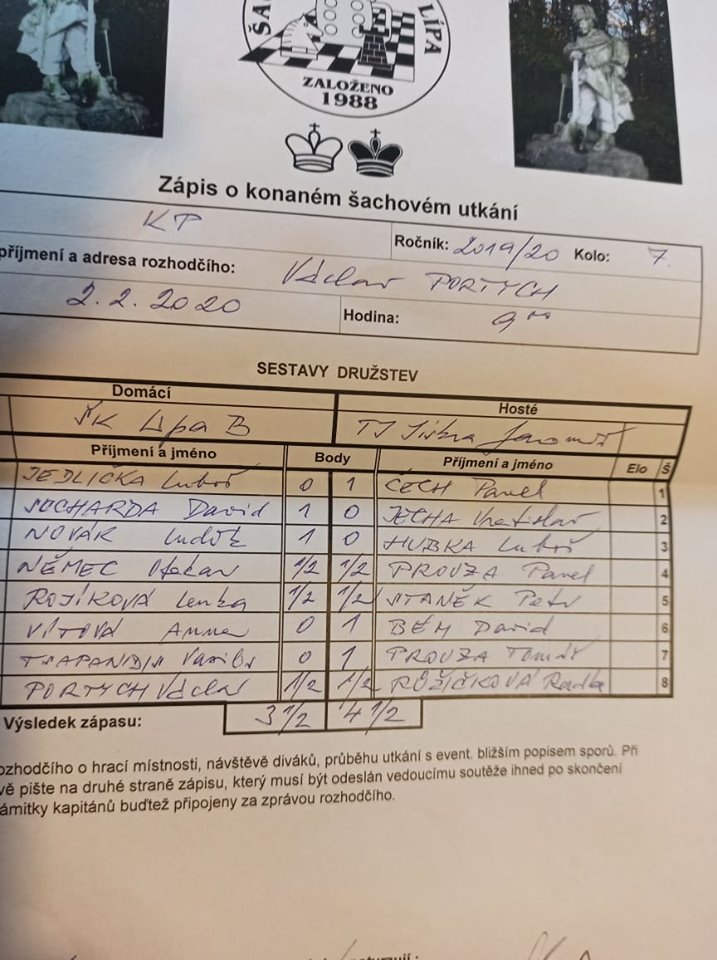 ŠA LÍPA
ZALOŽENO
1988
Zápis o konaném šachovém utkání
KP Ročník: 2019/20 Kolo: 7.
příjmení a adresa rozhodčího: Václav PORTYCH
2.2.2020 Hodina: 9 00
SESTAVY DRUŽSTEV
Domácí Hosté
ŠK Lípa B TJ Jiskra Jaroměř
Příjmení a jméno Body Příjmení a jméno Elo Š
JEDLIČKA Luboš 0 1 ČECH Pavel 1
SUCHARDA David 1 0 JECHA Vratislav 2
NOVÁK Luděk 1 0 HUBKA Luboš 3
NĚMEC Otakar 1/2 1/2 PROUZA Pavel 4
ROJÍKOVÁ Lenka 1/2 1/2 STANĚK Petr 5
VÍTOVÁ Anna 0 1 BÉM David 6
0 1 PROUZA Tomáš 7
PORTYCH Václav 1/2 1/2 RŮŽIČKOVÁ Radka 8
Výsledek zápasu: 3 1/2 4 1/2
ozhodčího o hrací místnosti, návštěvě diváků, průběhu utkání s event. bližším popisem sporů. Při
vě pište na druhé straně zápisu, který musí být odeslán vedoucímu soutěže ihned po skončení
ámitky kapitánů buďtež připojeny za zprávou rozhodčího.